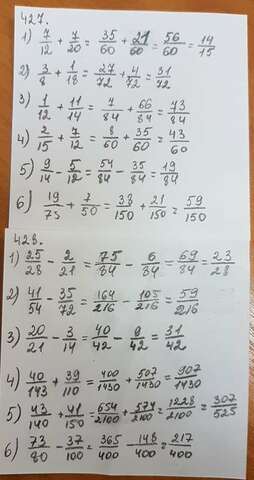 427.
1) 7/12 + 7/20 = 35/60 + 21/60 = 56/60 = 14/15
2) 3/8 + 1/18 = 27/72 + 4/72 = 31/72
3) 1/12 + 11/14 = 7/84 + 66/84 = 73/84
4) 2/15 + 7/12 = 8/60 + 35/60 = 43/60
5) 9/14 - 5/12 = 54/84 - 35/84 = 19/84
6) 19/75 + 7/50 = 38/150 + 21/150 = 59/150
428.
1) 25/28 - 2/21 = 75/84 - 6/84 = 69/84 = 23/28
2) 41/54 - 35/72 = 164/216 - 105/216 = 59/216
3) 20/21 - 3/14 = 40/42 - 9/42 = 31/42
4) 40/143 + 39/110 = 400/1430 + 507/1430 = 907/1430
5) 43/140 + 41/150 = 654/2100 + 574/2100 = 1228/2100 = 307/525
6) 73/80 - 37/100 = 365/400 - 148/400 = 217/400